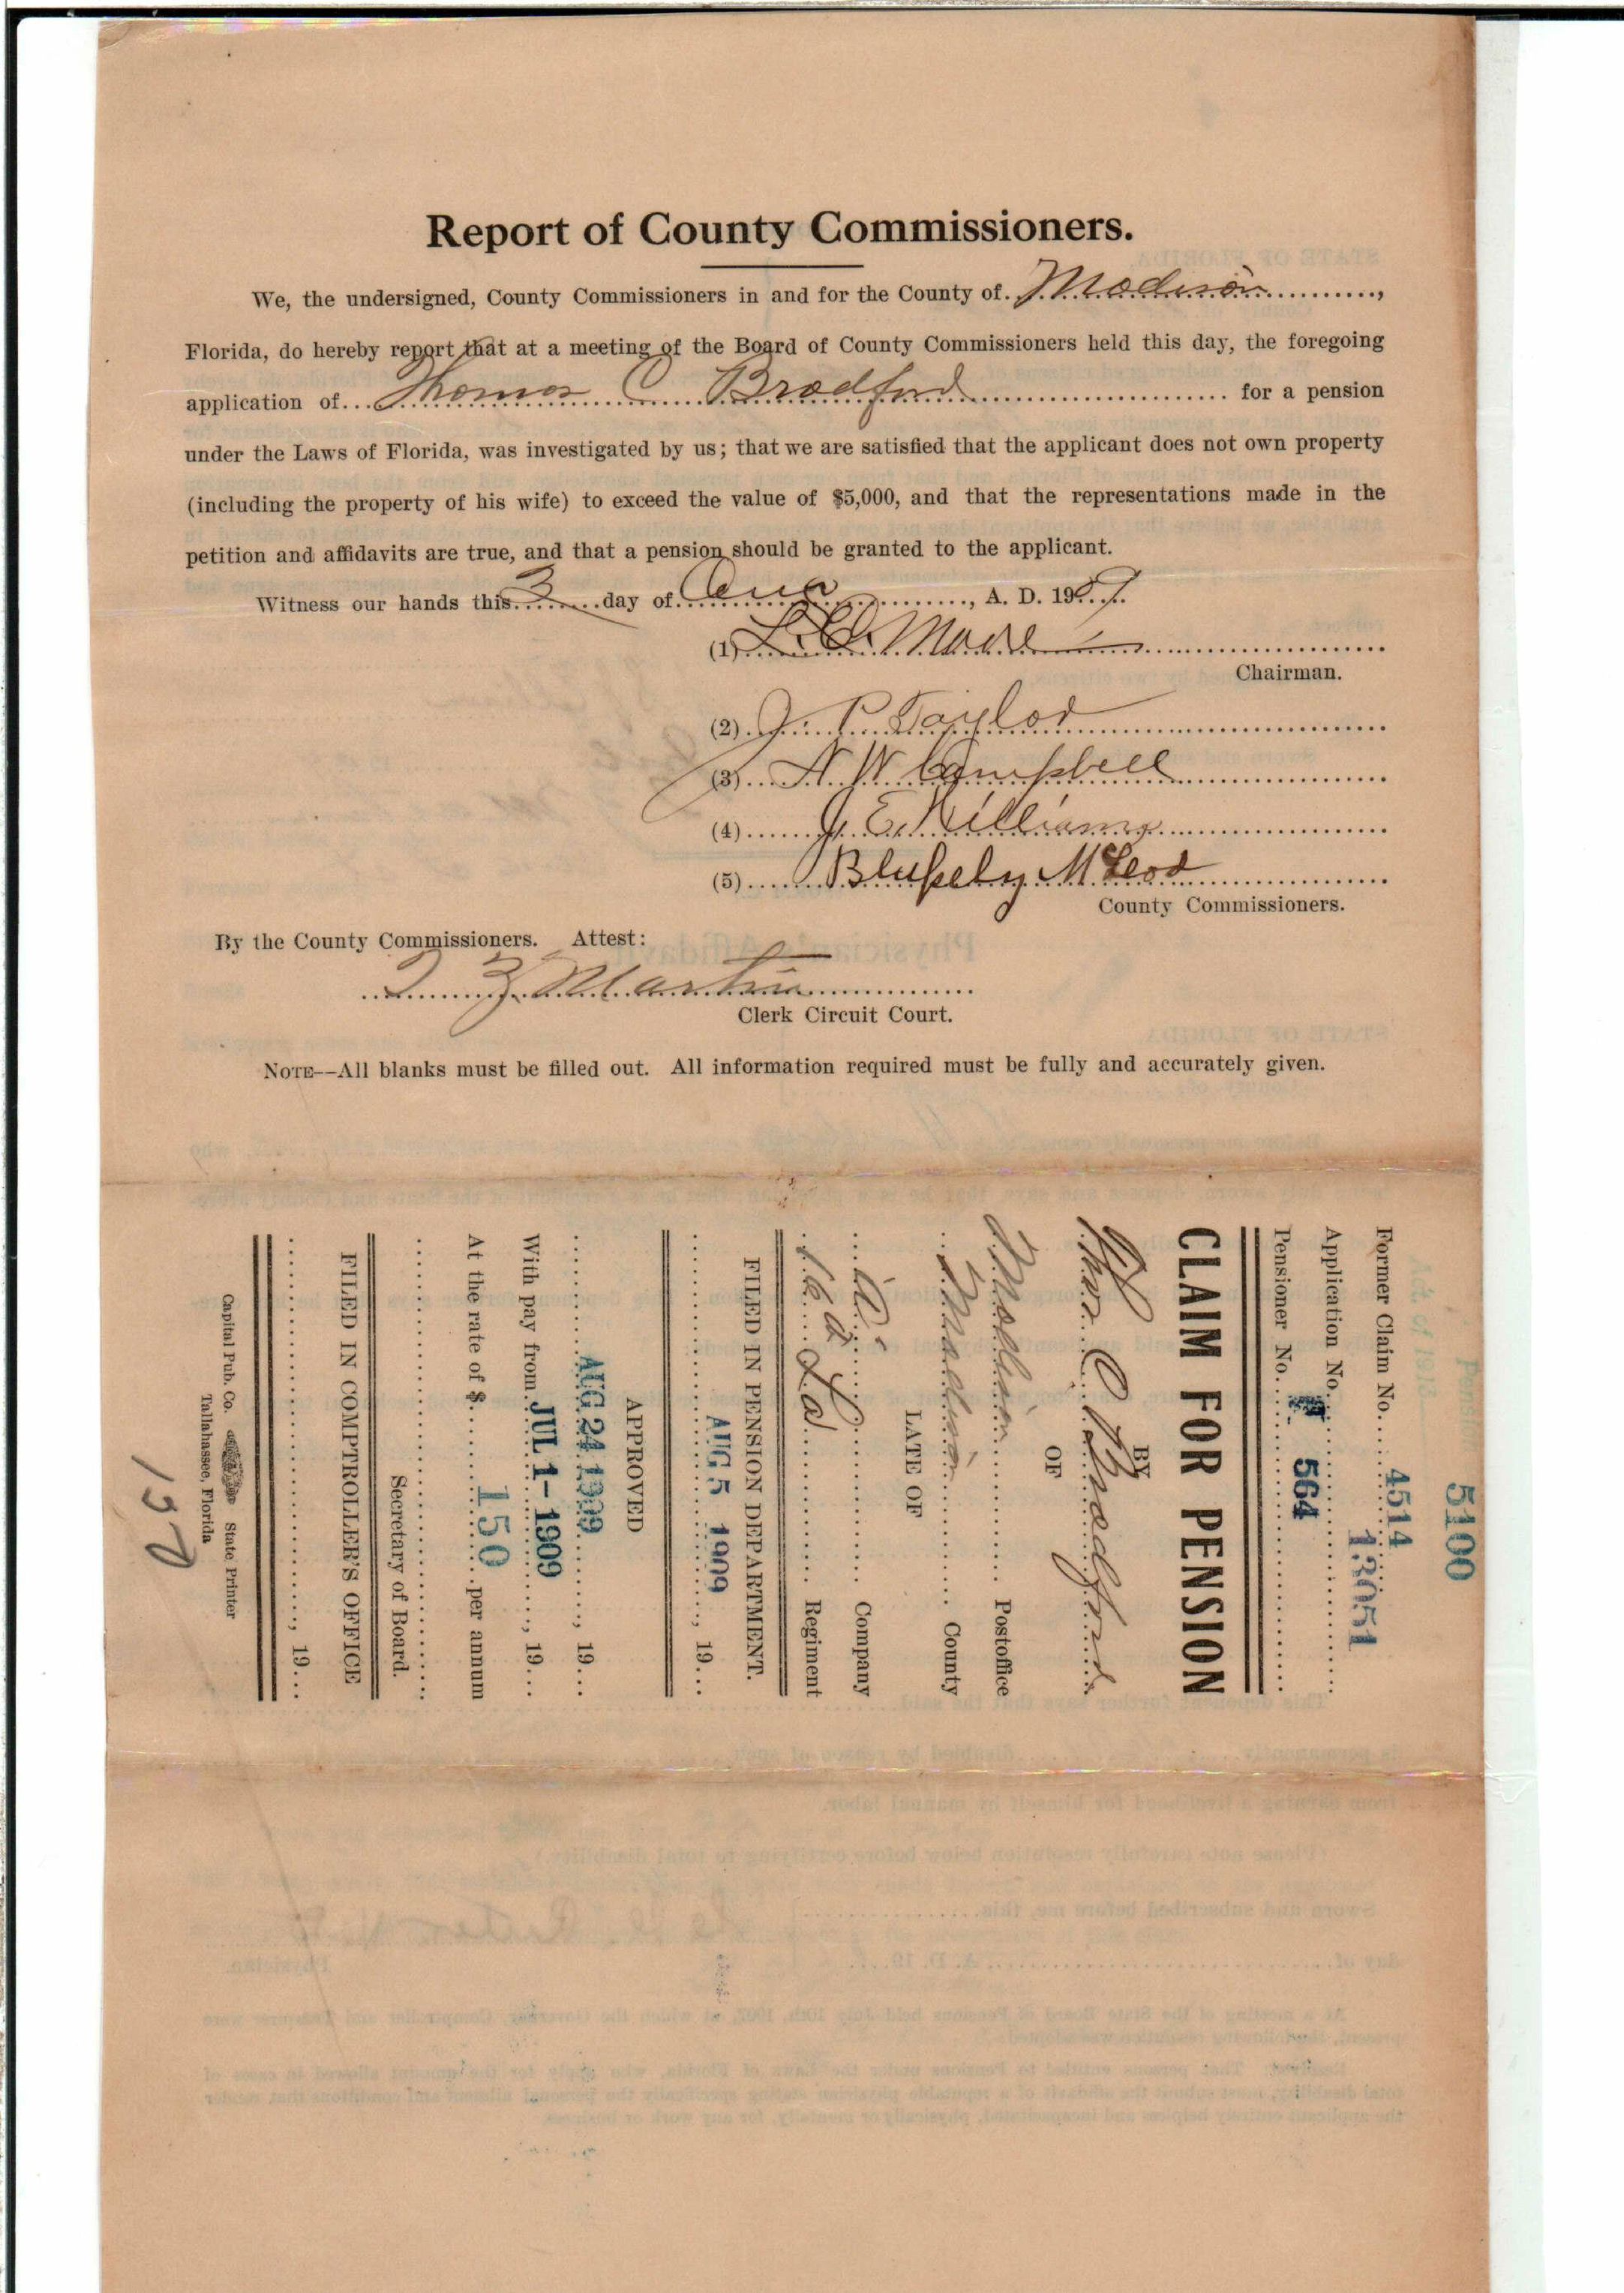 Report of County Commissioners.
We, the undersigned, County Commissioners in and for the County of Madison,
Florida, do hereby report that at a meeting of the Board of County Commissioners held this day, the foregoing
application of Thomas C Bradford for a pension
under the Laws of Florida, was investigated by us; that we are satisfied that the applicant does not own property
(including the property of his wife) to exceed the value of $5,000, and that the representations made in the
petition and affidavits are true, and that a pension should be granted to the applicant.
Witness our hands this 3 day of Aug, A. D. 1909.
(1) Moore
Chairman.
(2) J. P. Taylor
(3) N W Campbell
(4) J. E. Williams
(5) McLeod
County Commissioners.
By the County Commissioners. Attest:
Martin
Clerk Circuit Court.
NOTE--All blanks must be filled out. All information required must be fully and accurately given.
5100
Former Claim No. 4514
13051
Application No.
Pensioner No. 564
CLAIM FOR PENSION
BY
Thos C Bradford
OF
Madison Postoffice
Madison County
LATE OF
Company
Regiment
FILED IN PENSION DEPARTMENT.
AUG 5 1909, 19
APPROVED
AUG 24 1909, 19
With pay from JUL 1- 1909, 19
At the rate of $ 150 per annum
Secretary of Board.
FILED IN COMPTROLLER'S OFFICE
, 19
Capital Pub. Co. State Printer
Tallahassee, Florida